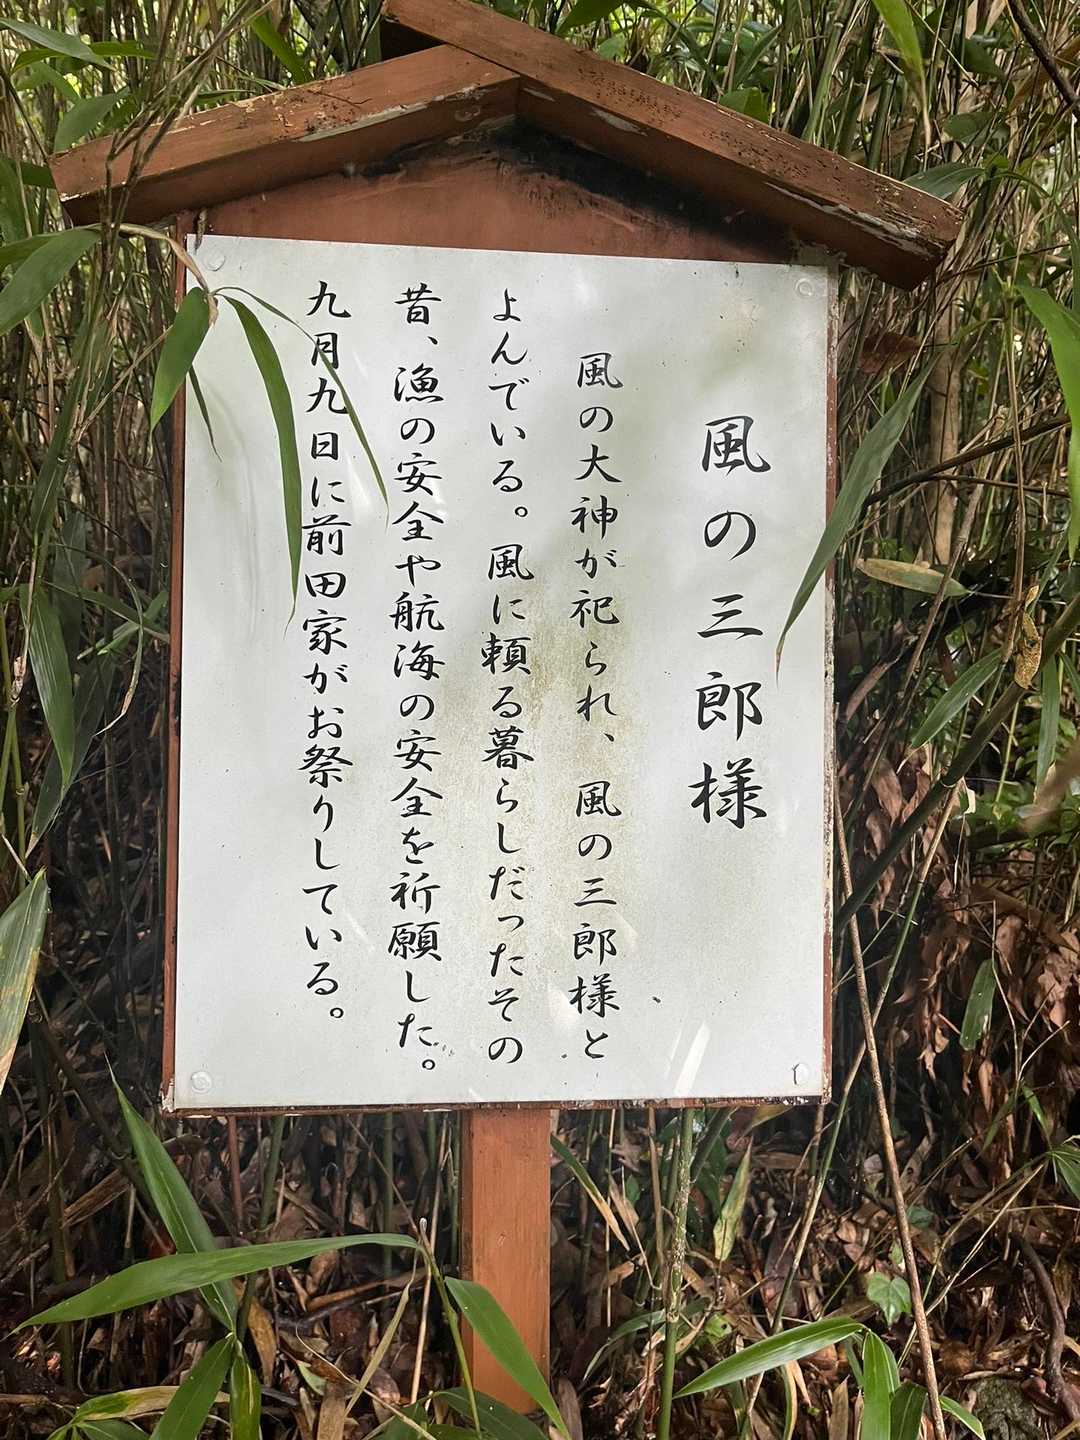 風の三郎様
風の大神が祀られ、風の三郎様と
よんでいる。風に頼る暮らしだったその
昔、漁の安全や航海の安全を祈願した。
九月九日に前田家がお祭りしている。